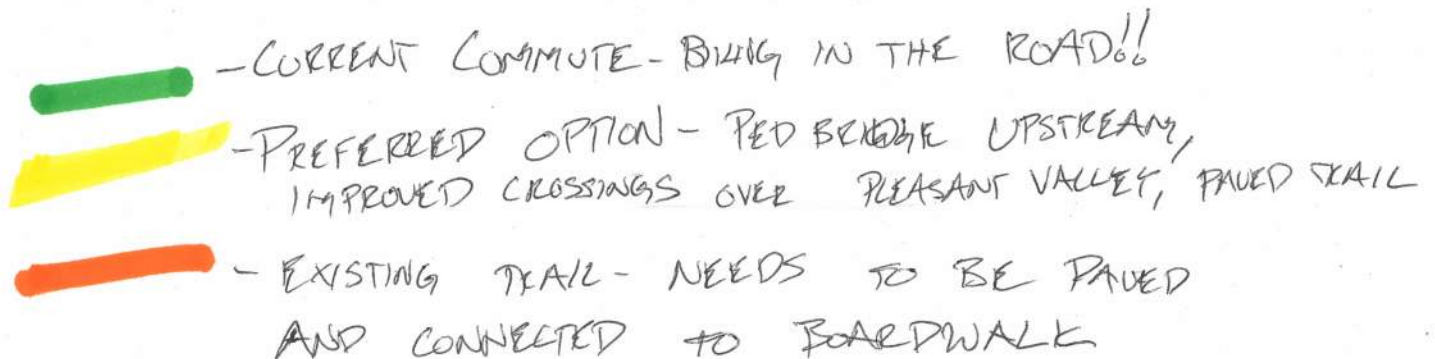 - CURRENT COMMUTE - BIKING IN THE ROAD!!
- PREFERRED OPTION - PED BRIDGE UPSTREAM,
IMPROVED CROSSINGS OVER PLEASANT VALLEY, PAVED TRAIL
- EXISTING TRAIL - NEEDS TO BE PAVED
AND CONNECTED TO BOARDWALK